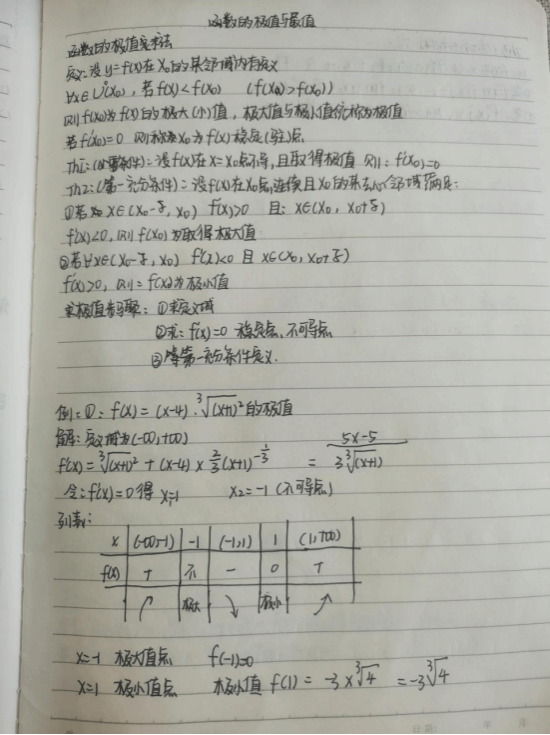 函数的极值与最值
函数的极值定义法
定义:设y=f(x)在x₀的某邻域内有定义
∀x∈U°(x₀),若f(x)<f(x₀) (f(x)>f(x₀))
则f(x₀)为f(x)的极大(小)值,极大值与极小值统称为极值
若f'(x₀)=0 则称x₀为f(x)稳定(驻)点
Th1:(必要条件):设f(x)在x=x₀点可导,且取得极值 则:f'(x₀)=0
Th2:(第一充分条件):设f(x)在x₀点连续且x₀的某去心邻域满足:
①若 x∈(x₀-δ, x₀) f'(x)>0 且:x∈(x₀, x₀+δ)
f'(x)<0,则f(x₀)为取得极大值
②若∀x∈(x₀-δ, x₀) f'(x)<0 且 x∈(x₀, x₀+δ)
f'(x)>0,则:f(x₀)为极小值
求极值步骤:①求定义域
②求:f'(x)=0 稳定点,不可导点
③第一充分条件定义.
例:①:f(x)=(x-4)·∛(x+1)²的极值
解:定义域为(-∞,+∞)
f'(x)=∛(x+1)²+(x-4)×⅔(x+1)^(-1/3) = (5x-5)/(3∛(x+1))
令:f'(x)=0得 x₁=1 x₂=-1(不可导点)
列表:
x (-∞,-1) -1 (-1,1) 1 (1,+∞)
f'(x) + 不 - 0 +
↗ 极大 ↘ 极小 ↗
x=-1 极大值点 f(-1)=0
x=1 极小值点 极小值 f(1)= -3×∛4 =-3∛4